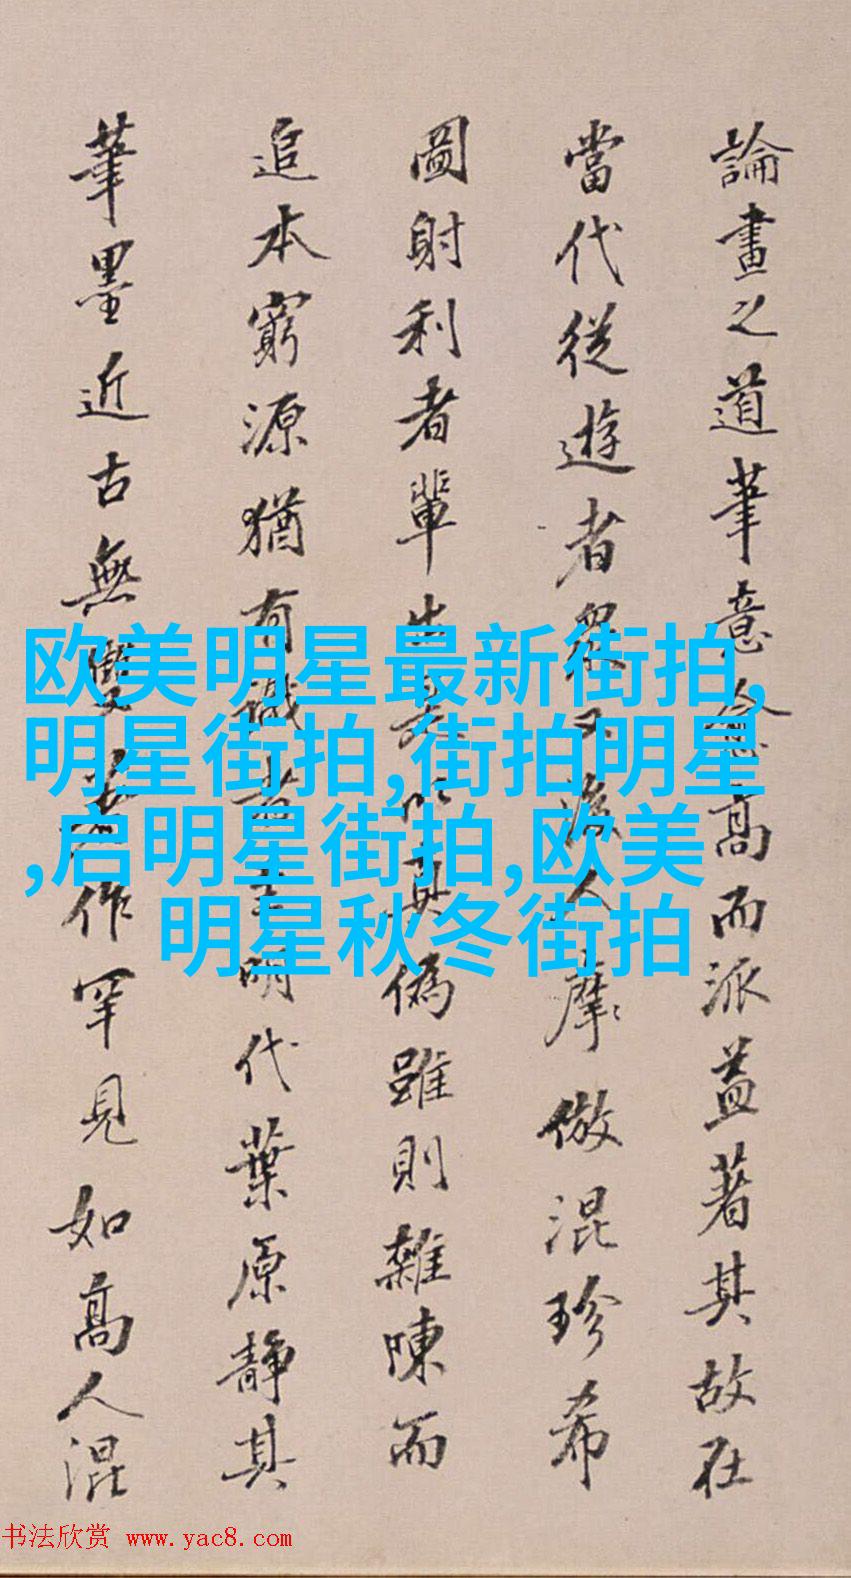 論畫之道筆意為高而派益著其故在
當代從遊者眾又後人摩倣混珍希
圖射利者輩出是以真偽雖則雜陳而
追本窮源猶有識者在明代葉原靜其
筆墨近古無雙著作罕見如高人混
欧美明星最新街拍,
明星街拍,街拍明星
,启明星街拍,欧美
明星秋冬街拍
书法欣赏 www.yac8.com